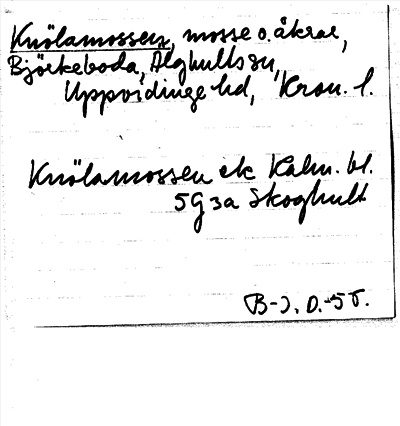 Knölamossen, mosse o. åkrar,
Björkeboda, Älghults sn,
Uppvidinge hd, Kron. l.
Knölamossen ek Kalm. bl.
5G 3a Skoghult
B-J. O. -55.